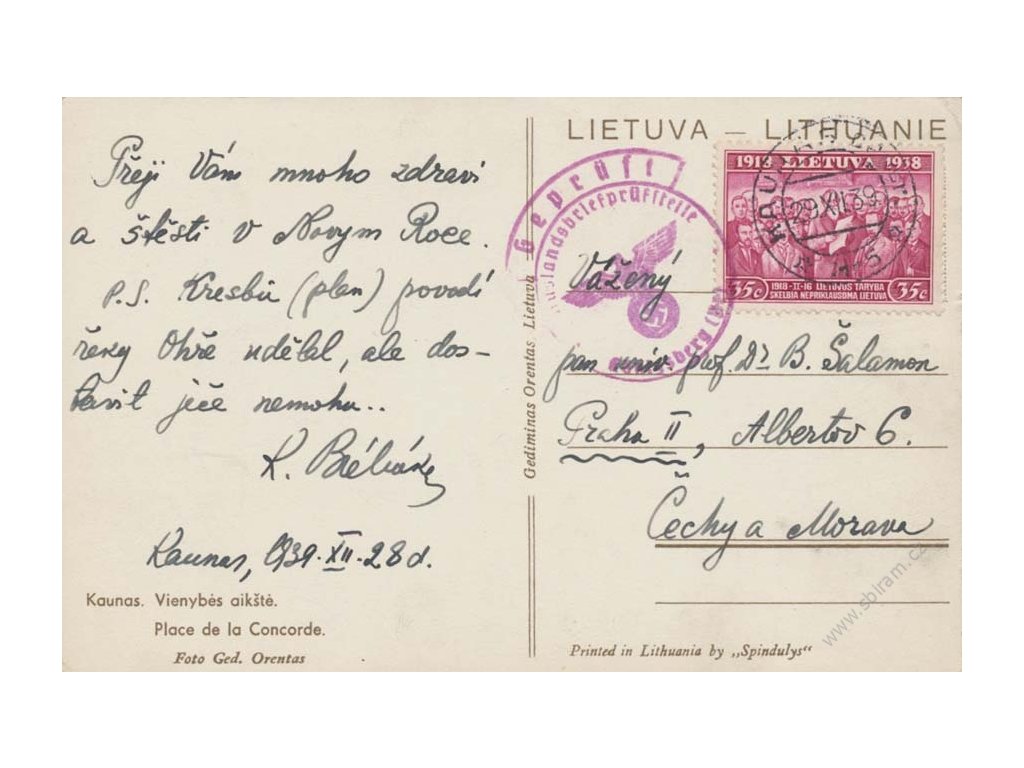 Přeji Vám mnoho zdraví
a štěsti v Novym Roce.
P.S. Kresbu (plan) povodí
řeky Ohře udělal, ale dos-
tavit ječe nemohu..
Kaunas, 1939.XII.28d.
Kaunas. Vienybės aikštė.
Place de la Concorde.
Foto Ged. Orentas
Gediminas Orentas Lietuva
LIETUVA – LITHUANIE
Geprüft
Auslandsbriefprüfstelle
1918 LIETUVA 1938
35c 1918-II-16 LIETUVOS TARYBA 35c
SKELBIA NEPRIKLAUSOMĄ LIETUVĄ
KAUNAS
29 XII 39
Vážený
pan univ. prof. Dr. B. Šalamon
Praha II, Albertov 6.
Čechy a Morava
Printed in Lithuania by „Spindulys“
www.sbiram.cz